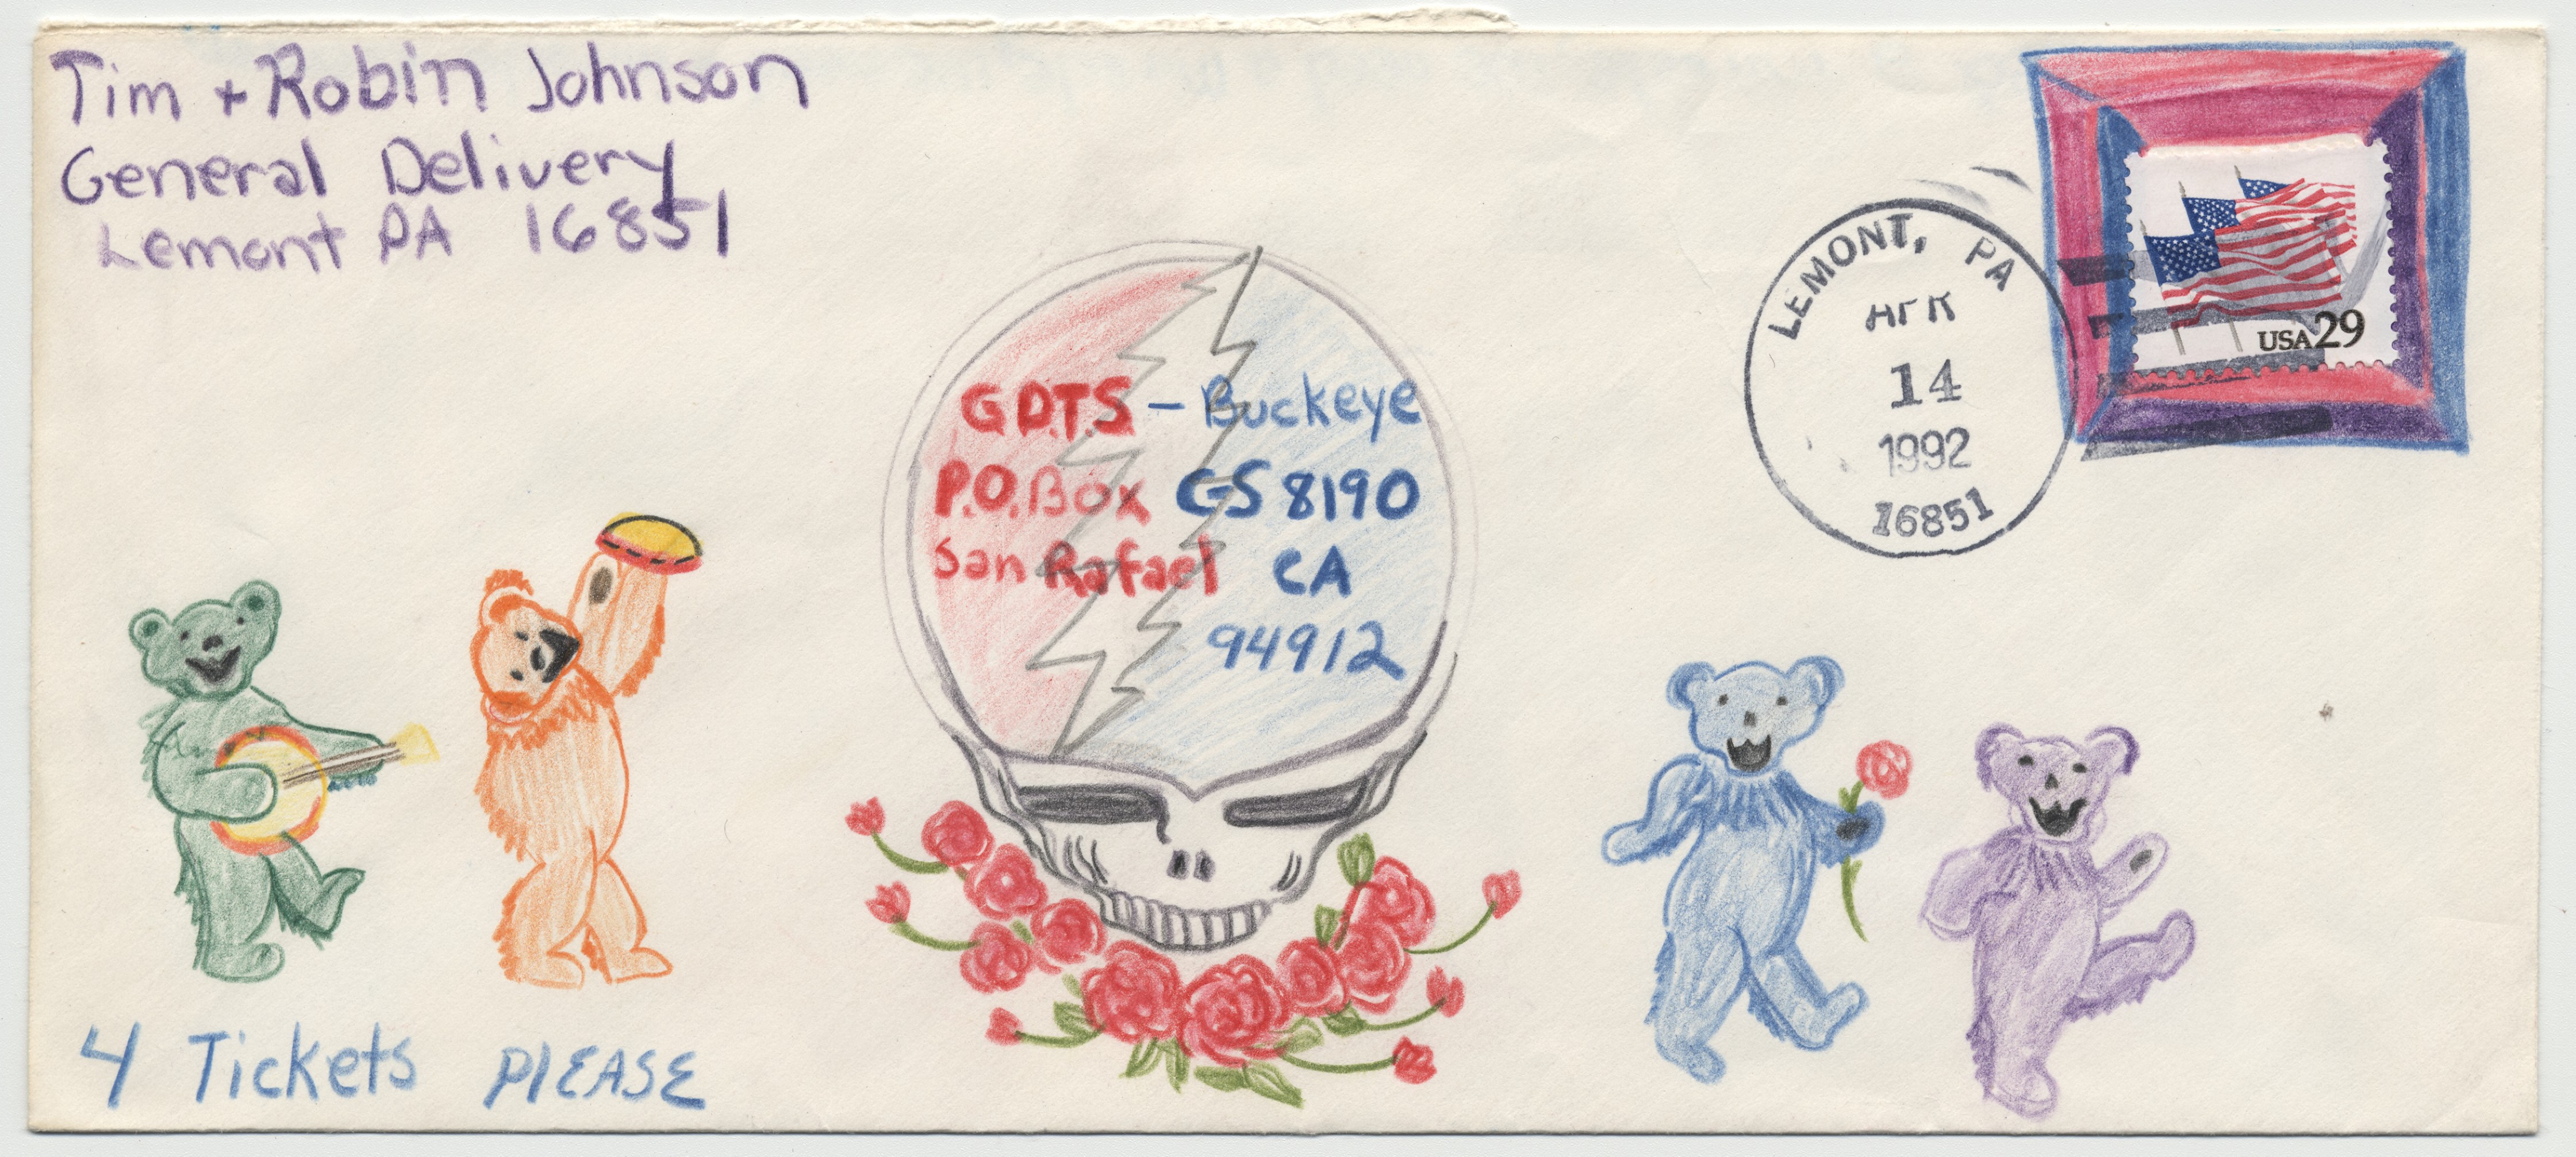 Tim + Robin Johnson
General Delivery
Lemont PA 16851
LEMONT, PA
APR
14
1992
16851
USA 29
G.D.T.S - Buckeye
P.O. Box CS 8190
San Rafael CA
94912
4 Tickets PlEASE